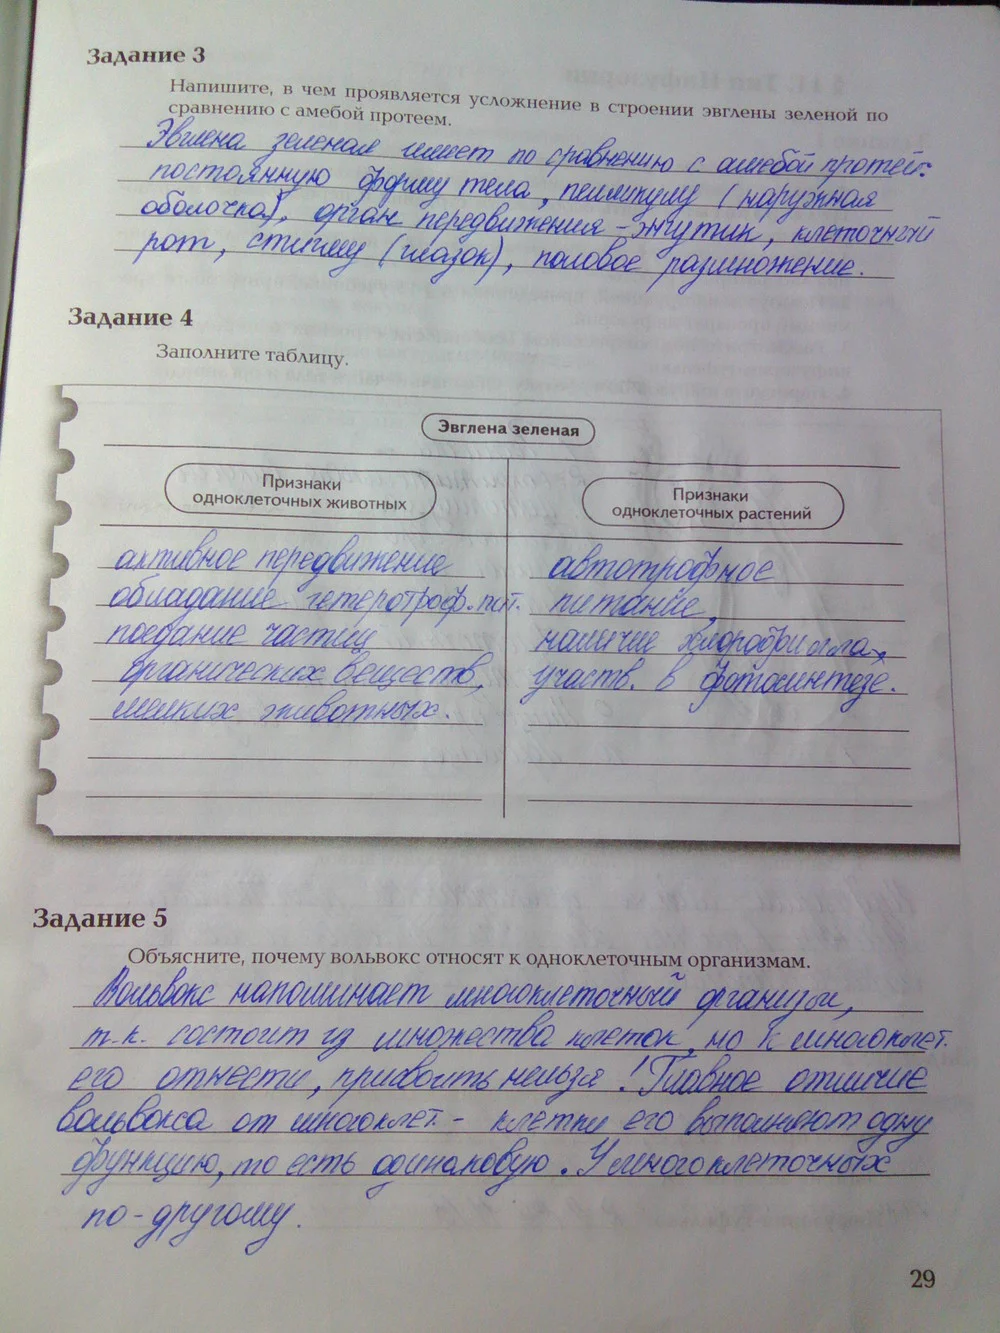 Задание 3
Напишите, в чем проявляется усложнение в строении эвглены зеленой по
сравнению с амебой протеем.
Эвглена зеленая имеет по сравнению с амебой протей:
постоянную форму тела, пелликулу (наружная
оболочка), орган передвижения - жгутик, клеточный
рот, стигму (глазок), половое размножение.
Задание 4
Заполните таблицу.
Эвглена зеленая
Признаки
одноклеточных животных
активное передвижение
обладание гетеротроф. пит.
поедание частиц
органических веществ,
мелких животных.
Признаки
одноклеточных растений
автотрофное
питание,
наличие хлорофилла,
участв. в фотосинтезе.
Задание 5
Объясните, почему вольвокс относят к одноклеточным организмам.
Вольвокс напоминает многоклеточный организм,
т.к. состоит из множества клеток, но к многоклет.
его отнести, присвоить нельзя! Главное отличие
вольвокса от многоклет. - клетки его выполняют одну
функцию, то есть одинаковую. У многоклеточных
по-другому.
29